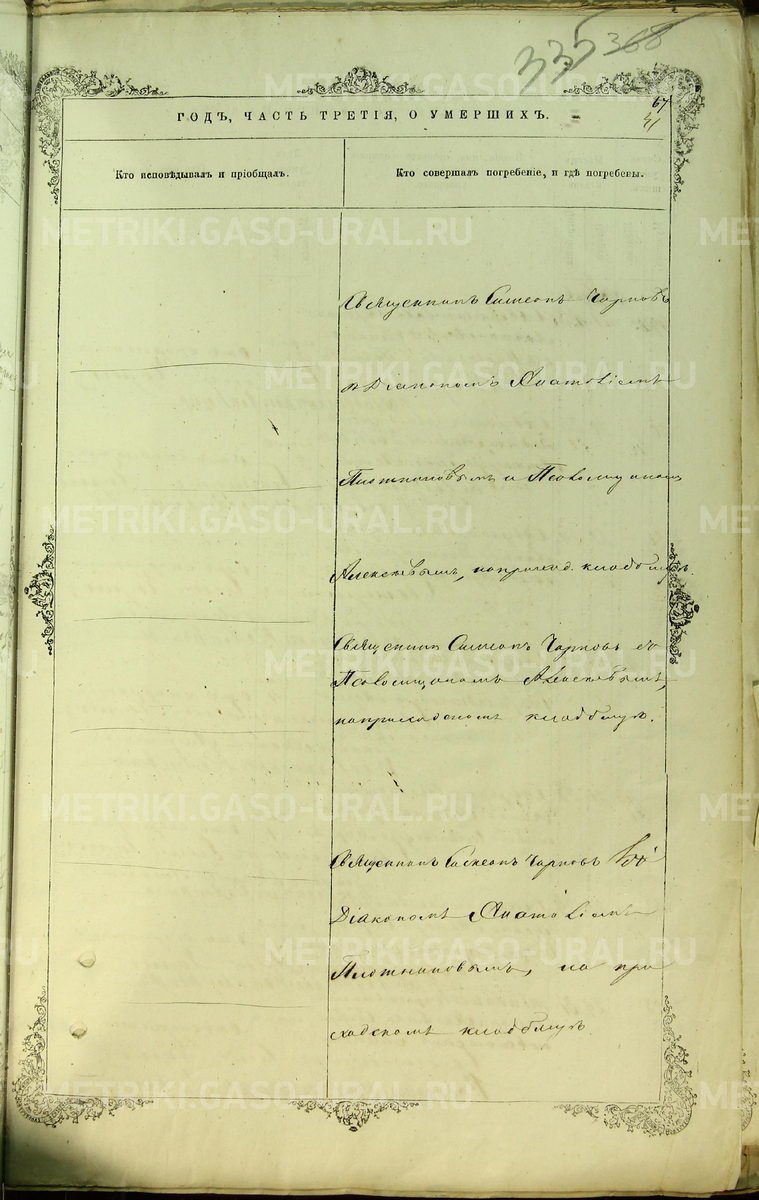 335 368
67
41
ГОДЪ, ЧАСТЬ ТРЕТІЯ, О УМЕРШИХЪ.
Кто исповѣдывалъ и пріобщалъ.
Кто совершалъ погребеніе, и гдѣ погребены.
METRIKI.GASO-URAL.RU
Священникъ Симеонъ Черновъ
Діакономъ Анатоліемъ
Плотниковымъ и Псаломщикомъ
Алексѣевымъ, на приход. кладбищѣ.
Священникъ Симеонъ Черновъ съ
Псаломщикомъ Алексѣевымъ,
на приходскомъ кладбищѣ.
Священникъ Симеонъ Черновъ
Діакономъ Анатоліемъ
Плотниковымъ, на при
ходскомъ кладбищѣ